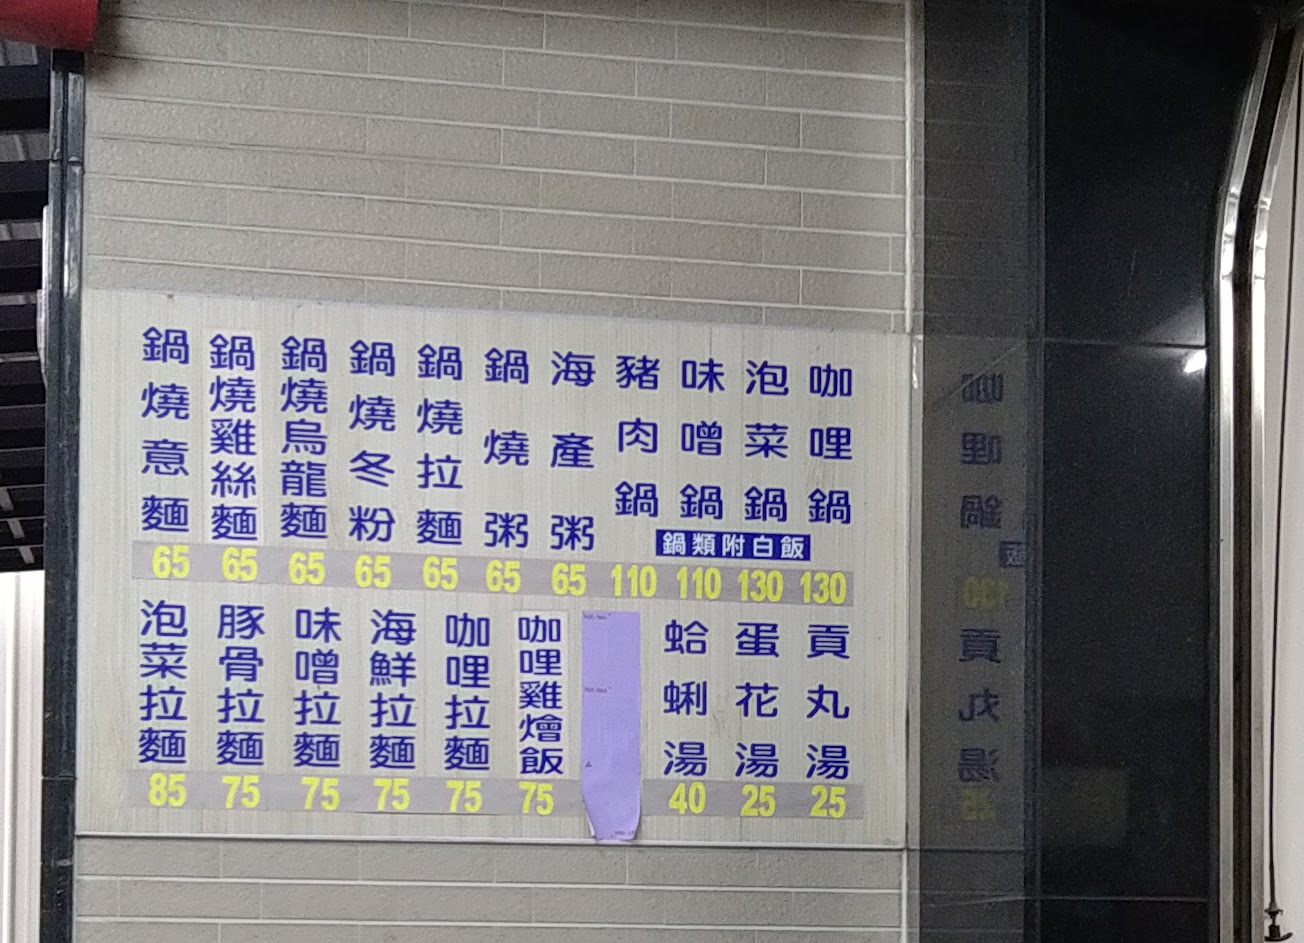 鍋燒意麵
65
鍋燒雞絲麵
65
鍋燒烏龍麵
65
鍋燒冬粉
65
鍋燒拉麵
65
鍋燒粥
65
海產粥
65
豬肉鍋
110
味噌鍋
110
泡菜鍋
130
咖哩鍋
130
鍋類附白飯
泡菜拉麵
85
豚骨拉麵
75
味噌拉麵
75
海鮮拉麵
75
咖哩拉麵
75
咖哩雞燴飯
75
蛤蜊湯
40
蛋花湯
25
貢丸湯
25